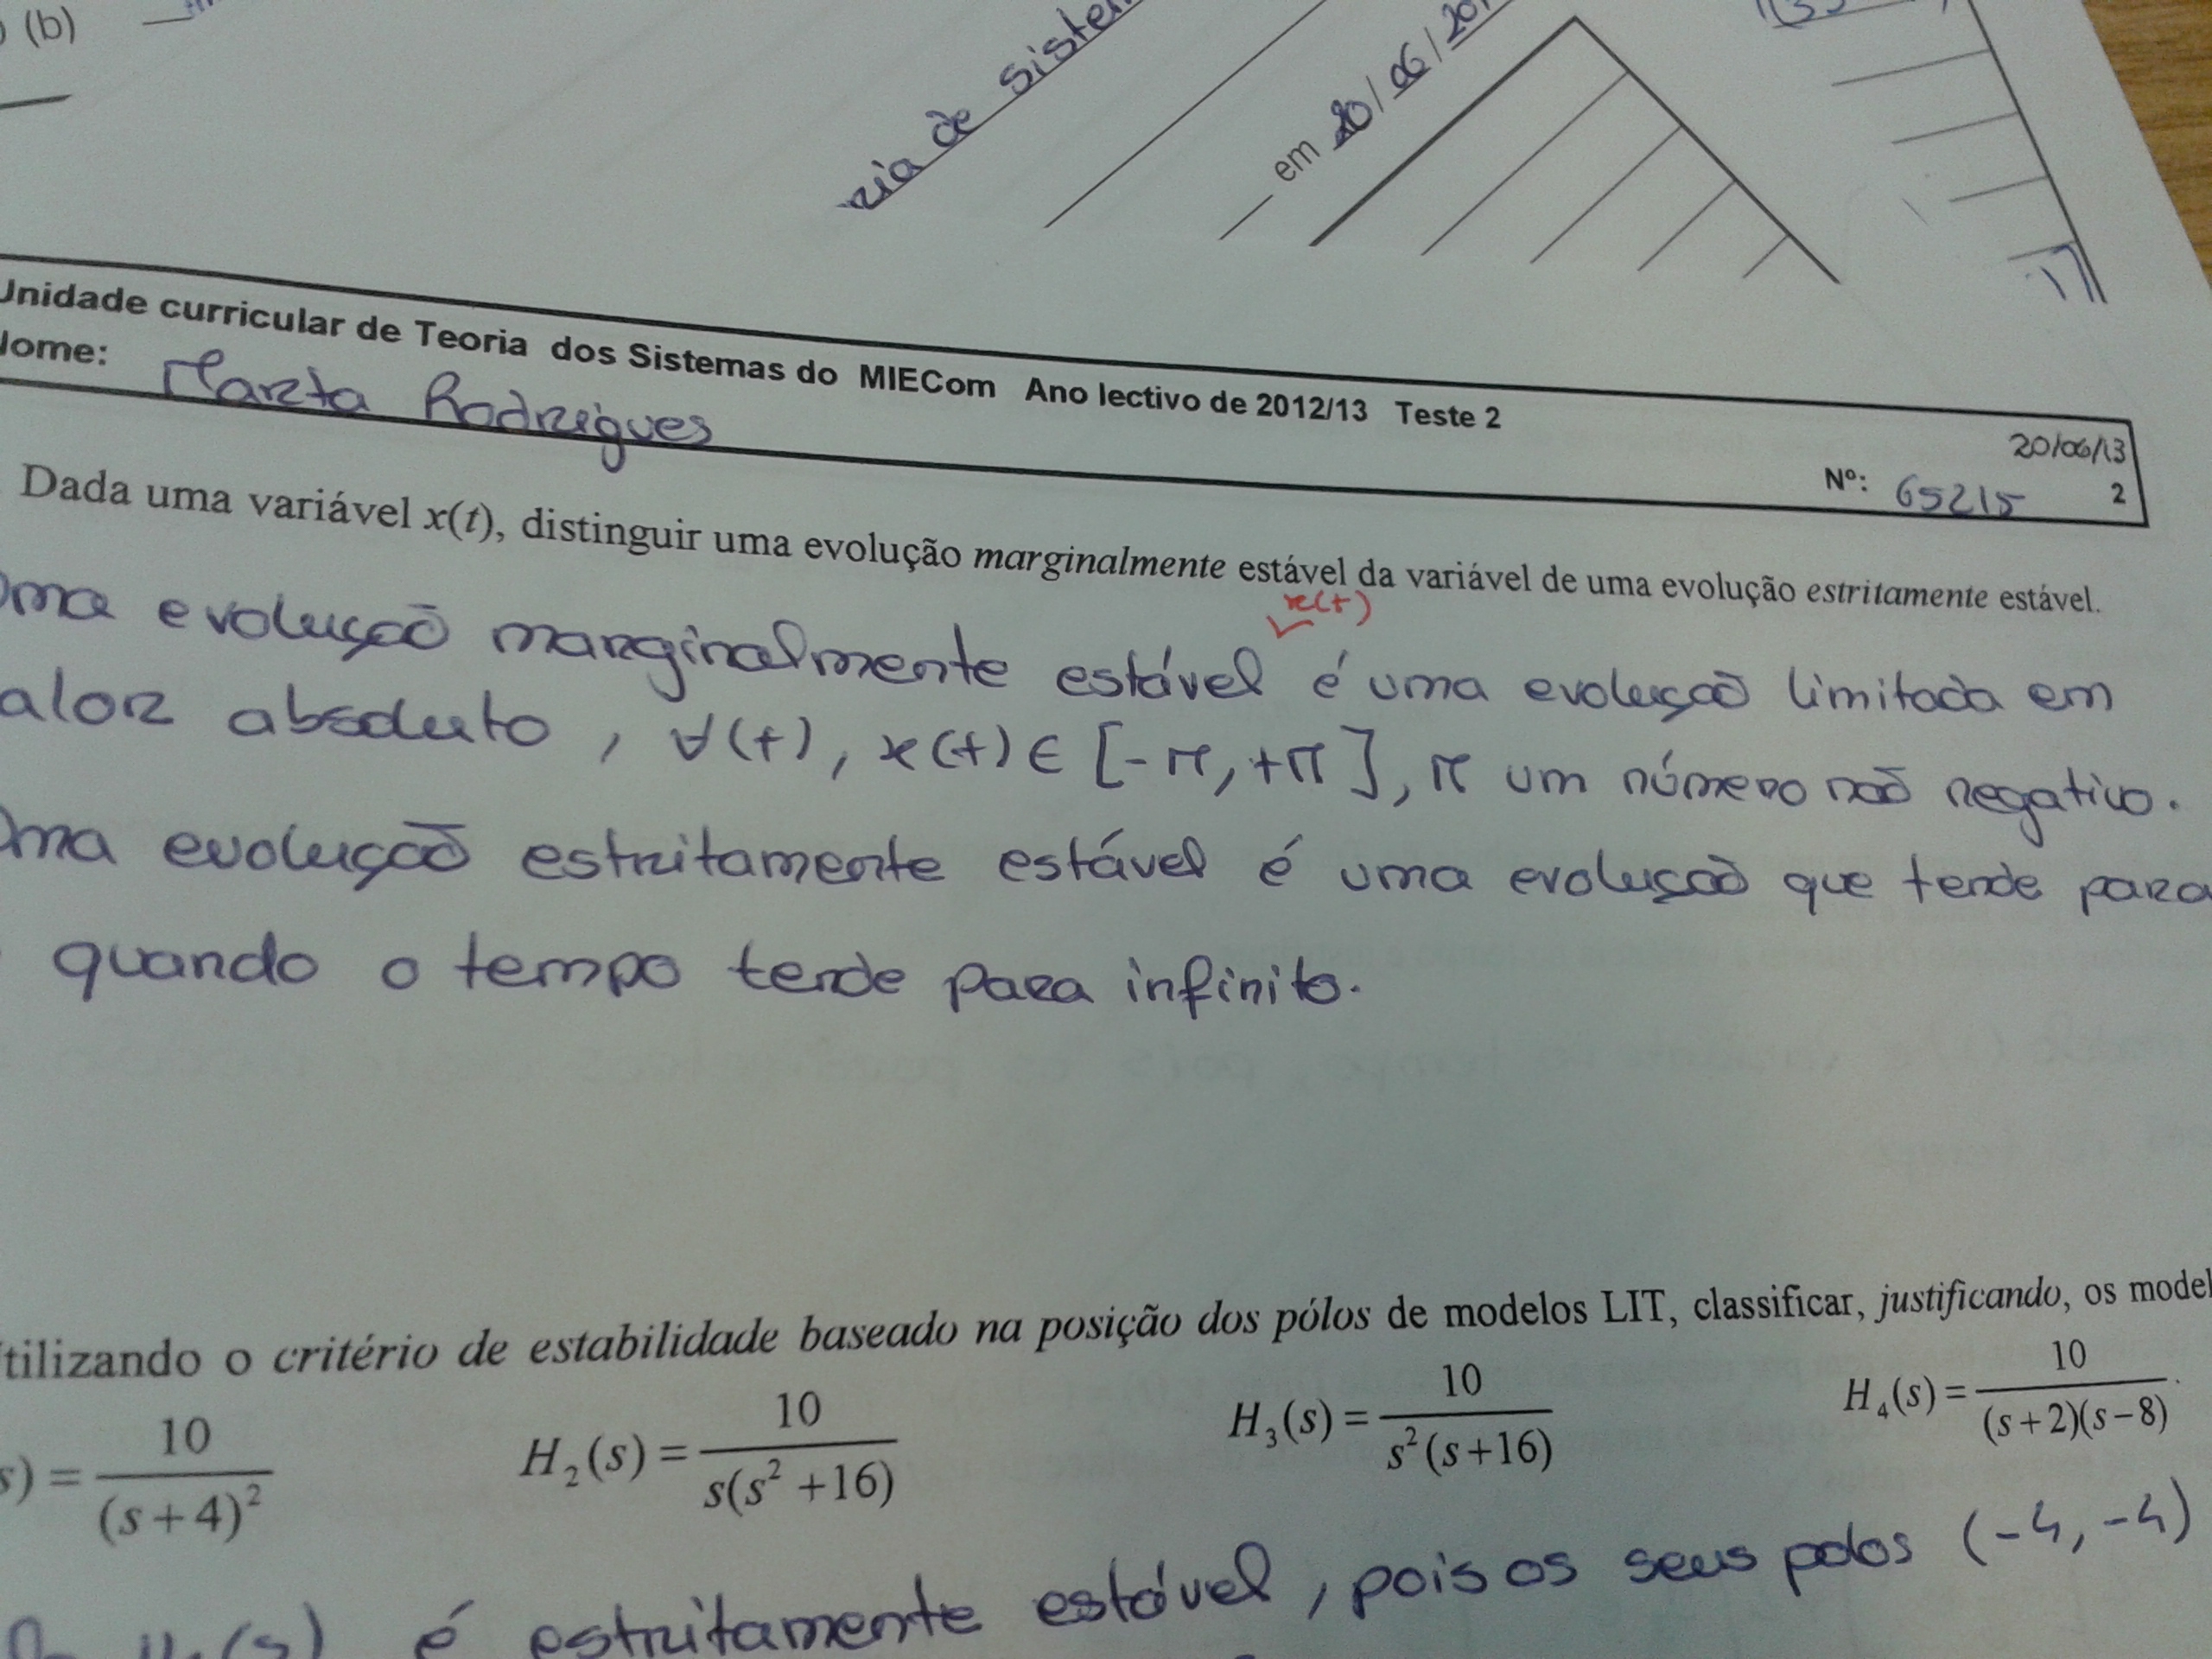 (b)
de Siste
em 20/06/20
Unidade curricular de Teoria dos Sistemas do MIECom Ano lectivo de 2012/13 Teste 2
20/06/13
Nome: Marta Rodrigues
Nº: 65215 2
Dada uma variável x(t), distinguir uma evolução marginalmente estável da variável de uma evolução estritamente estável.
x(t)
Uma evolução marginalmente estável é uma evolução limitada em
alor absoluto, ∀(t), x(t) ∈ [-M, +M], M um número não negativo.
Uma evolução estritamente estável é uma evolução que tende para
quando o tempo tende para infinito.
tilizando o critério de estabilidade baseado na posição dos pólos de modelos LIT, classificar, justificando, os model
s) = 10/(s+4)² H₂(s) = 10/(s(s²+16)) H₃(s) = 10/(s²(s+16)) H₄(s) = 10/((s+2)(s−8)).
é estritamente estável, pois os seus polos (-4, -4)